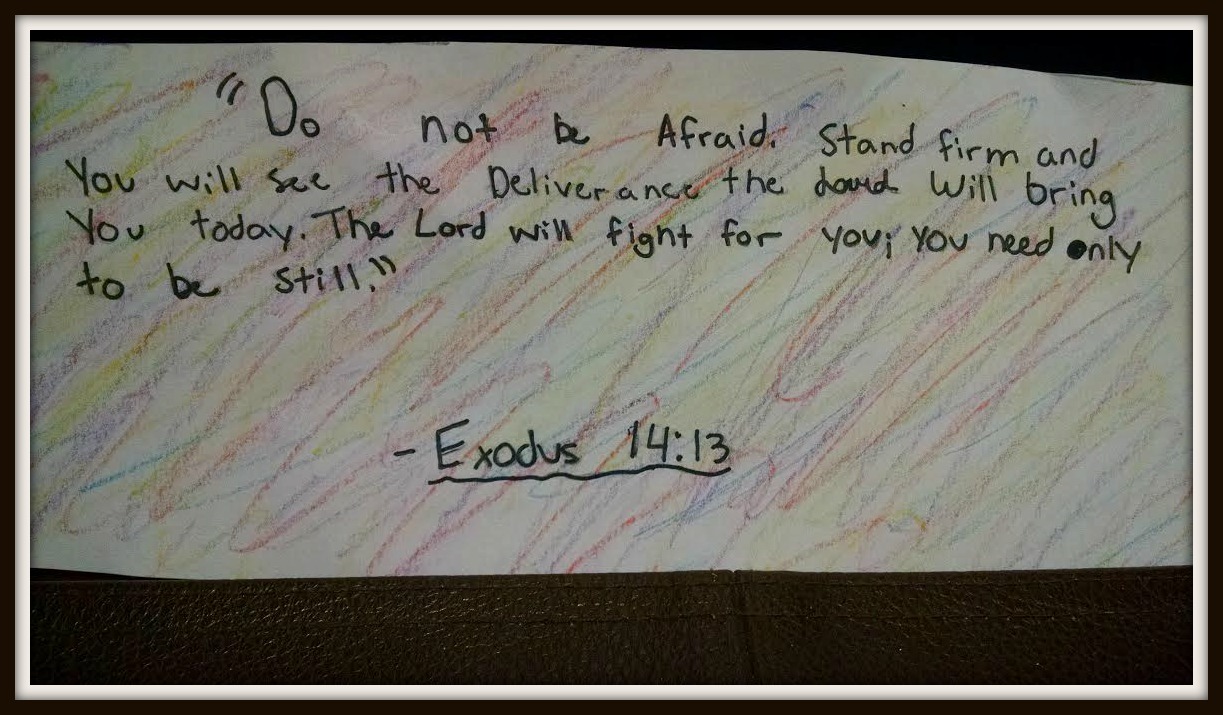 "Do not be Afraid. Stand firm and
You will see the Deliverance the will bring
You today. The Lord will fight for you; you need only
to be still."
- Exodus 14:13